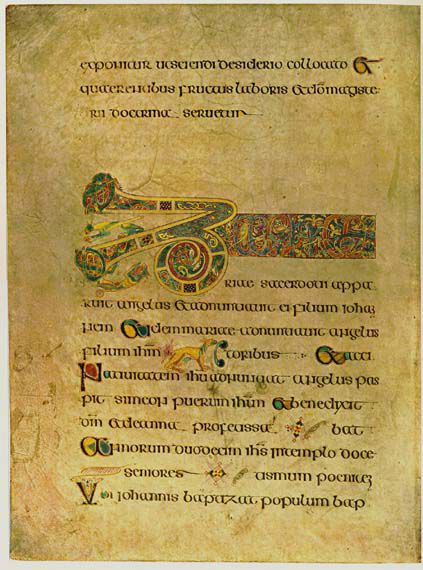 exponitur ut sciendi desiderio collocato et
quaerentibus fructus laboris et dō magiste-
rii doctrina servetur
Z
riae sacerdoti appa
ruit angelus et adnuntiavit ei filium iohan
nem Et idem mariae adnuntiavit angelus
filium ihm toribus Et acci
Nativitatem ihu adnuntiat angelus pas
pit simeon puerum ihm et benedixit
dm et de anna profetissa bat
Et annorum duodecim ihs in templo doce
seniores tismum poeniten
Ubi iohannis baptizat populum bap